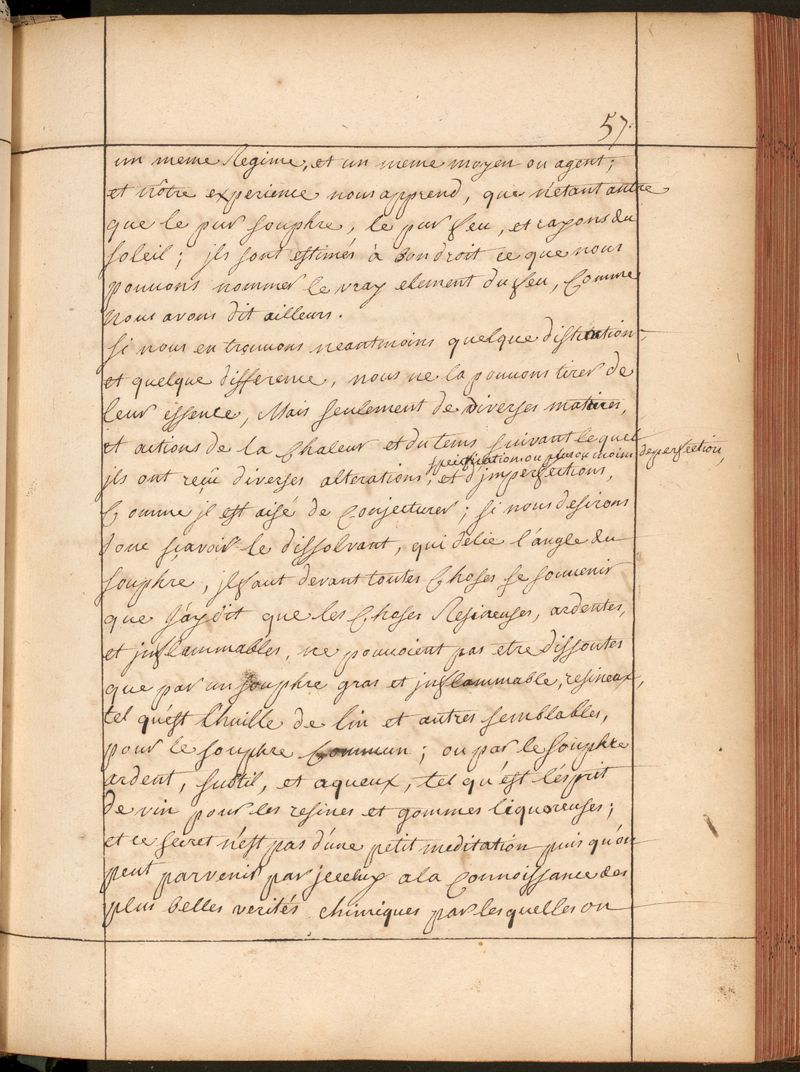 57.
un meme Regime, et un meme moyen ou agent;
et nôtre experience nous apprend, que n'etant autre
que le pur souphre, le pur feu, et rayons du
soleil; jls sont estimés à bon droit ce que nous
pouvons nommer le vray element du feu, Comme
nous avons dit ailleurs.
Si nous en trouvons neantmoins quelque distination
et quelque difference, nous ne la pouvons tirer de
leur essence, Mais seulement de diverses matieres,
et actions de la Chaleur et du tems suivant lequel
specification ou plus ou moins de perfection,
jls ont reçû diverses alterations, et d'jmperfections,
Comme jl est aisé de Conjecturer; si nous desirons
donc sçavoir le dissolvant, qui delie l'angle du
souphre, jl faut devant toutes Choses se souvenir
que j'ay dit que les Choses Resineuses, ardentes,
et jnflammables, ne pouvoient pas etre dissoutes
que par un souphre gras et jnflammable, resineux,
tel qu'est l'huille de lin et autres semblables,
pour le souphre Commun; ou par le souphre
ardent, subtil, et aqueux, tel qu'est l'esprit
de vin pour les resines et gommes liquoreuses;
et ce secret n'est pas d'une petit meditation puis qu'on
peut parvenir par jceluy a la Connoissance des
plus belles verités chimiques par lesquelles on